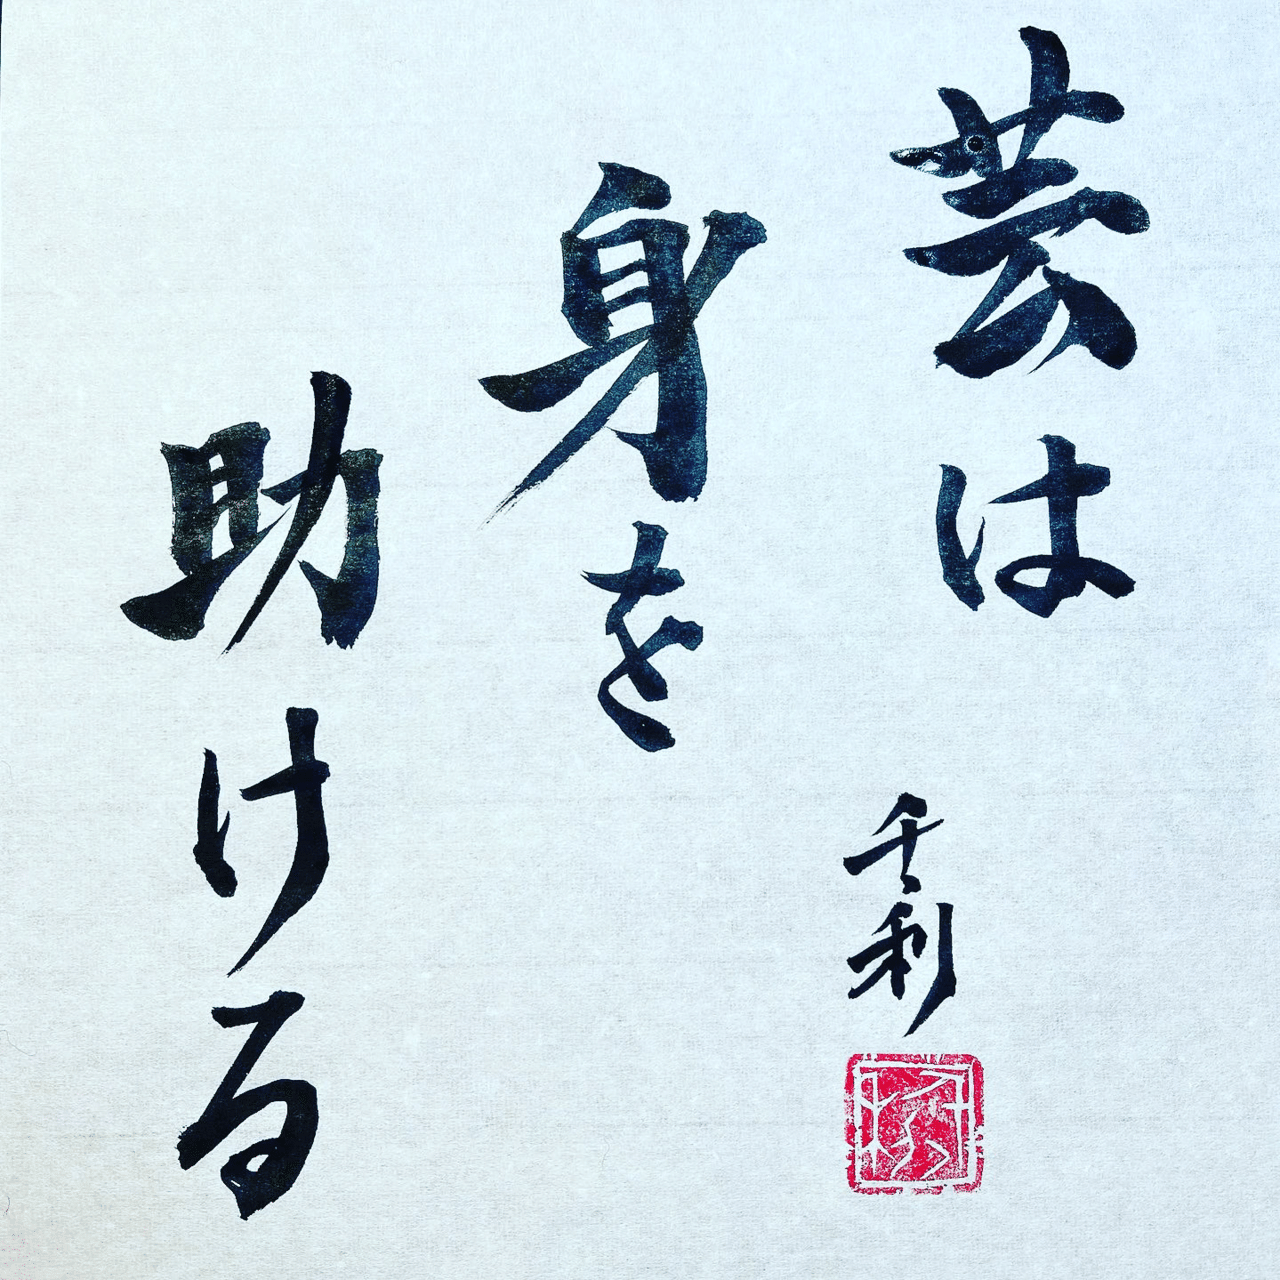 芸は
身を
助ける
千利